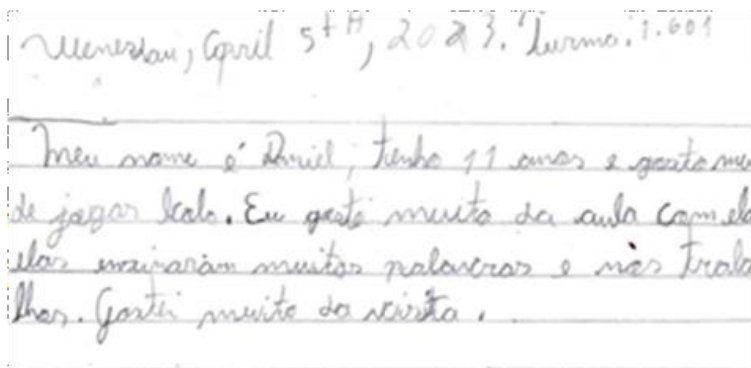 April 5tH, 2023. Turma: 1.601
Meu nome é Daniel, tenho 11 anos e gosto
de jogar bola. Eu gosti muito da aula com
elas ensinaram muitas palavras e nós
lhos. Gostei muito da visita.